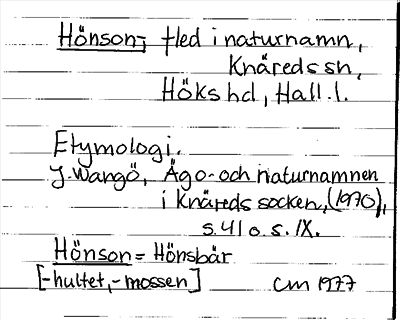 Hönson-, fled i naturnamn,
Knäreds sn,
Höks hd, Hall. l.
Etymologi.
J. Wangö, Ägo- och naturnamnen
i Knäreds socken, (1970),
s. 41 o. s. IX.
Hönson = Hönsbär
[-hultet, -mossen]
CM 1977